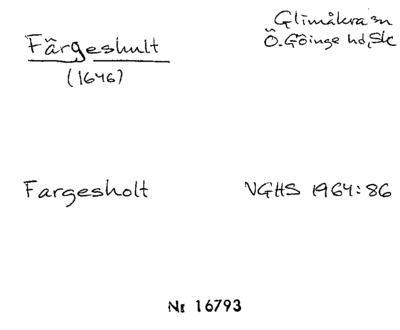 Färgeshult
(1646)
Glimåkra sn
Ö. Göinge hd, Sk
Fargesholt
VGHS 1964:86
Nr 16793